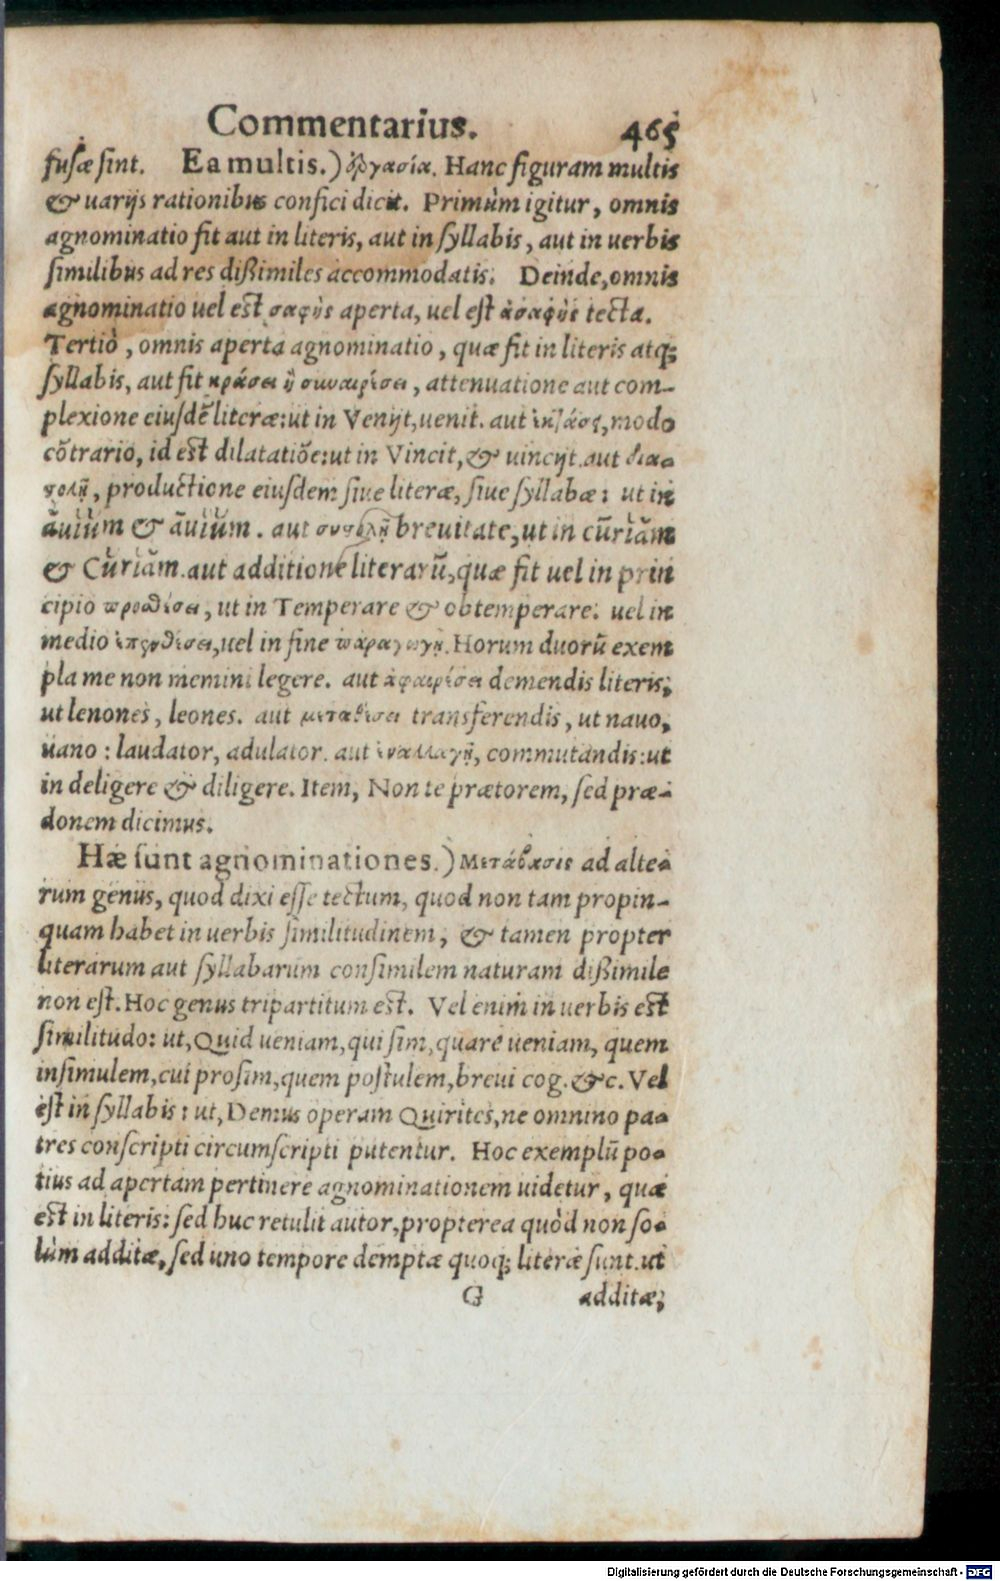 Commentarius. 465
fusæ sint. Ea multis.) ἐργασία. Hanc figuram multis
& uarijs rationibus confici dicit. Primùm igitur, omnis
agnominatio fit aut in literis, aut in syllabis, aut in uerbis
similibus ad res dißimiles accommodatis. Deinde, omnis
agnominatio uel est σαφὴς aperta, uel est ἀσαφὴς tecta.
Tertiò, omnis aperta agnominatio, quæ fit in literis atq;
syllabis, aut fit κράσει ἢ συναιρέσει, attenuatione aut com-
plexione eiusdē literæ: ut in Venijt, uenit. aut modo
cōtrario, id est dilatatiōe: ut in Vincit, & uincijt. aut δια-
ϛολῇ, productione eiusdem siue literæ, siue syllabæ: ut in
ăuĭŭm & āuĭŭm. aut συϛολῇ breuitate, ut in cūrĭăm
& Cŭrĭăm. aut additione literarū, quæ fit uel in prin
cipio προσθέσει, ut in Temperare & obtemperare. uel in
medio ἐπενθέσει, uel in fine παραγωγῇ. Horum duorū exem
pla me non memini legere. aut ἀφαιρέσει demendis literis;
ut lenones, leones. aut μεταθέσει transferendis, ut nauo,
uano: laudator, adulator. aut ἐναλλαγῇ, commutandis: ut
in deligere & diligere. Item, Non te prætorem, sed præ-
donem dicimus.
Hæ sunt agnominationes.) Μετάβασις ad alte-
rum genus, quod dixi esse tectum, quod non tam propin-
quam habet in uerbis similitudinem, & tamen propter
literarum aut syllabarum consimilem naturam dißimile
non est. Hoc genus tripartitum est. Vel enim in uerbis est
similitudo: ut, Quid ueniam, qui sim, quare ueniam, quem
insimulem, cui prosim, quem postulem, breui cog. &c. Vel
est in syllabis: ut, Demus operam Quirites, ne omnino pa-
tres conscripti circumscripti putentur. Hoc exemplū po-
tius ad apertam pertinere agnominationem uidetur, quæ
est in literis: sed huc retulit autor, propterea quòd non so-
lùm additæ, sed uno tempore demptæ quoq; literæ sunt. ut
G additæ;
Digitalisierung gefördert durch die Deutsche Forschungsgemeinschaft - DFG